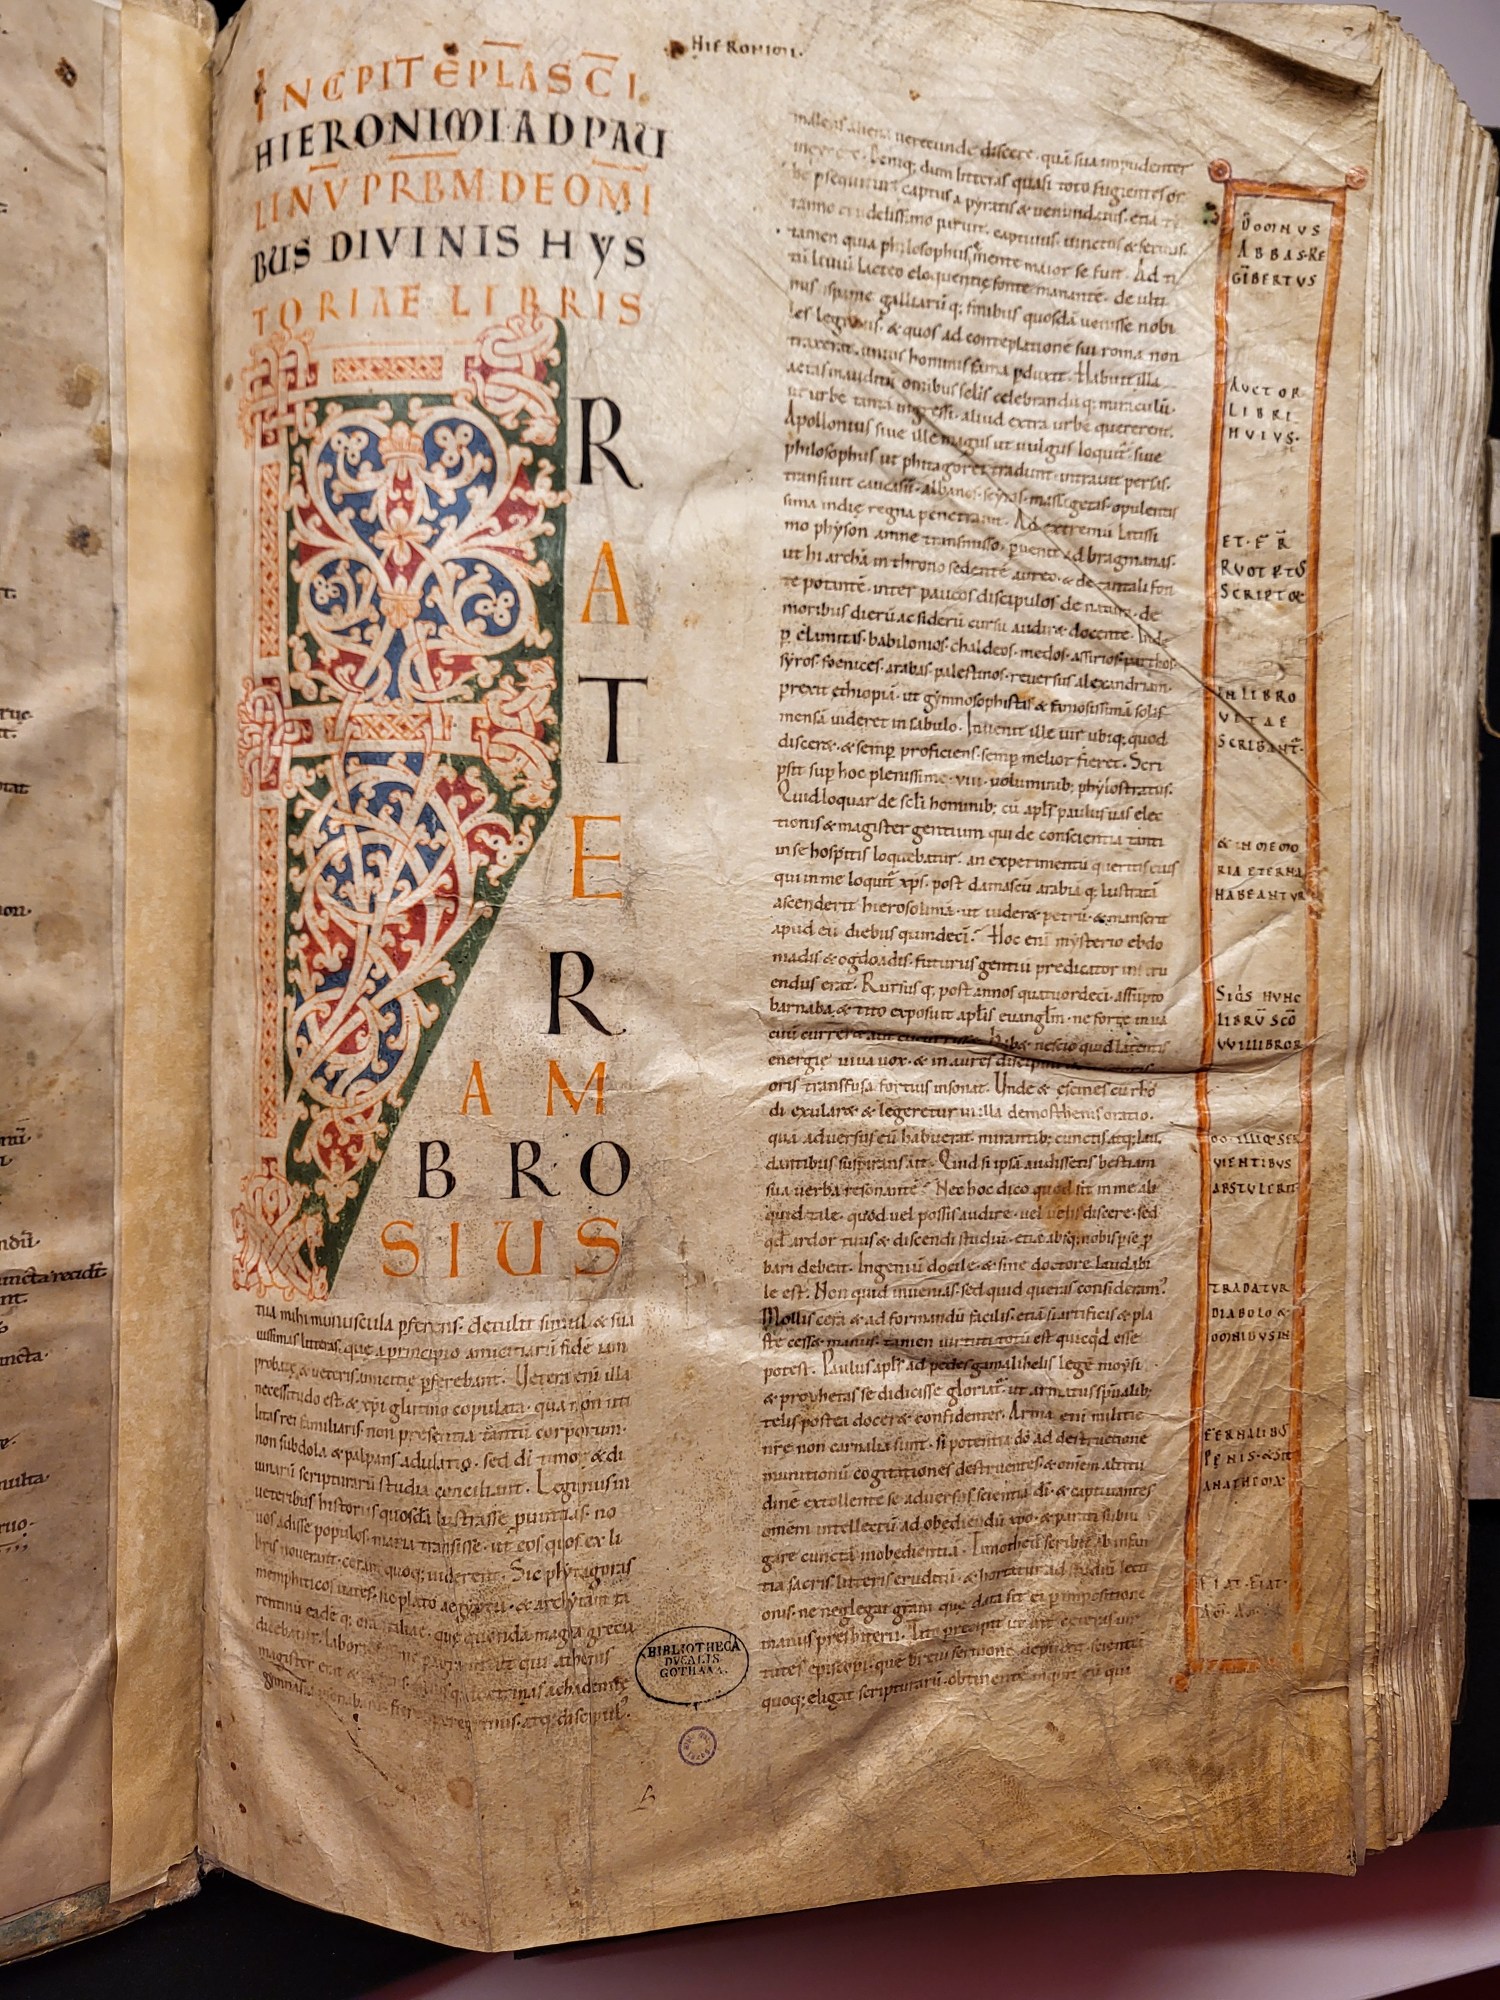 HIERONIMI.
INCPIT EPLA SCI
HIERONIMI AD PAU
LINV PRBM. DE OMI
BUS DIVINIS HYS
TORIAE LIBRIS
F
R
A
T
E
R
A M
B R O
S I U S
tua mihi munuscula pferens. detulit simul & sua
uissimas litteras. que a principio amicitiarū fidē iam
probatę & ueteris amicitię pferebant. Uetera enī illa
necessitudo est. & xpi glutino copulata. qua non uti
litas rei familiaris. non presentia tantū corporum.
non subdola & palpans adulatio. sed dī timor. & di
uinarū scripturarū studia conciliant. Legimus in
ueteribus historiis quosdā lustrasse puintias. no
uos adisse populos. maria transisse. ut eos quos ex li
bris nouerant. coram quoq; uiderent. Sic phytagoras
memphiticos uates. sic plato aegyptū. & archytam ta
rentinū eadē q; orā italiae. que quondā magna grecia
dicebatur. laboriosissime
magister erat & potens.
malens aliena uerecunde discere. quā sua impudenter
ingerere. Deniq; dum litteras quasi toto fugientes or
be psequitur. captus a pyratis & uenundatus. etiā ti
ranno crudelissimo paruit. captiuus. uinctus & seruus.
tamen quia philosophus mente maior se fuit. Ad ti
tū liuiū lacteo eloquentię fonte manantē. de ulti
mis ispanię galliarū q; finibus quosdā uenisse nobi
les legimus. & quos ad contēplationē sui roma non
traxerat. unius hominis fama pduxit. Habuit illa
aetas inauditū omībus sęlis celebrandū q; miraculū.
ut urbē tantā ingressi. aliud extra urbē quererent.
Apollonius siue ille magus ut uulgus loquit. siue
philosophus ut phitagorei tradunt. intrauit persas.
transiuit caucasū. albanos. scytas. massagetas. opulentis
sima indię regna penetrauit. Ad extremū latissi
mo physon amne transmisso. puenit ad bragmanas.
ut hiarchā in throno sedentē aureo. & de tantali fon
te potantē. inter paucos discipulos de natura. de
moribus dierū ac siderū cursu audiret docente. Inde
p elamitas. babilonios. chaldeos. medos. assirios. parthos.
syros. foenices. arabas. palestinos. reuersus alexandriam.
prexit ethiopiā. ut gymnosophistas & famosissimā solis
mensā uideret in sabulo. Inuenit ille uir ubiq; quod
disceret. & semp proficiens. semp melior fieret. Scri
psit sup hoc plenissime. viii. uoluminib; phylostratus.
Quid loquar de sęli hominib; cū apls paulus uas elec
tionis & magister gentium qui de conscientia tanti
in se hospitis loquebatur. an experimentū queritis eius
qui in me loquit xps. post damascū arabiā q; lustratā
ascenderit hierosolimā. ut uideret petrū. & manserit
apud eū diebus quindeci. Hoc enī mysterio ebdo
madis & ogdoadis. futurus gentiū predicator instru
endus erat. Rursus q; post annos quatuordeci. assūpto
barnaba & tito exposuit aplis euanglm. ne forte in ua
cuū curreret aut cucurrisset. Habet nescio quid latentis
energię uiua uox. & in aures discipuli de auctoris
oris transfusa fortius insonat. Unde & eschines cū rho
di exularet & legeretur illa demosthenis oratio.
quā aduersus eū habuerat. mirantib; cunctis atq; lau
dantibus suspirans ait. Quid si ipsā audissetis bestiam
sua uerba resonantē. Nec hoc dico quod sit in me ali
quid tale. quod uel possis audire. uel uelis discere. sed
qd ardor tuus & discendi studiū. etiā absq; nobis p se p
bari debeat. Ingeniū docile & sine doctore laudabi
le est. Non quid inuenias. sed quid queras consideram'.
Mollis cera & ad formandū facilis. etiā si artificis & pla
ste cesset manus. tamen uirtuti totū est quicqd esse
potest. Paulus apls ad pedes gamalihelis legē moysi
& prophetas se didicisse gloriat. ut armatus spualib;
telis postea doceret confidenter. Arma enī militię
nrę non carnalia sunt. s; potentia dō ad destructionē
munitionū cogitationes destruentes. & omēm altitu
dinē extollente se aduersus scientiā dī. & captiuantes
omēm intellectū ad obediendū xpo. & parati subiu
gare cunctā inobedientiā. Timotheū scribit ab infan
tia sacris litteris eruditū. & hortatur ad studiū lecti
onis. ne neglegat gram que data sit ei p impositionē
manus presbiterii. Tito precipit ut int ceteras uir
tutes episcopi. que breui sermone depinxit. scientiā
quoq; eligat scripturarū. obtinentē inquit eū qui
DOMNUS
ABBAS. RE
GIBERTVS
AVCTOR
LIBRI
HVIVS.
ET. FR
RVOTPTS
SCRIPTOR
IN LIBRO
VITAE
SCRIBANT.
& IN MEMO
RIA ETERNA
HABEANTVR
SIQS HVNC
LIBRŪ SCO
VVILLIBROR
DO. ILLIQ. SER
VIENTIBVS
ABSTVLERIT.
TRADATVR
DIABOLO &
OMNIBVS IN
FERNALIBS
PENIS. & SIT
ANATHEMA.
FIAT. FIAT.
BIBLIOTHECA
DVCALIS
GOTHANA.